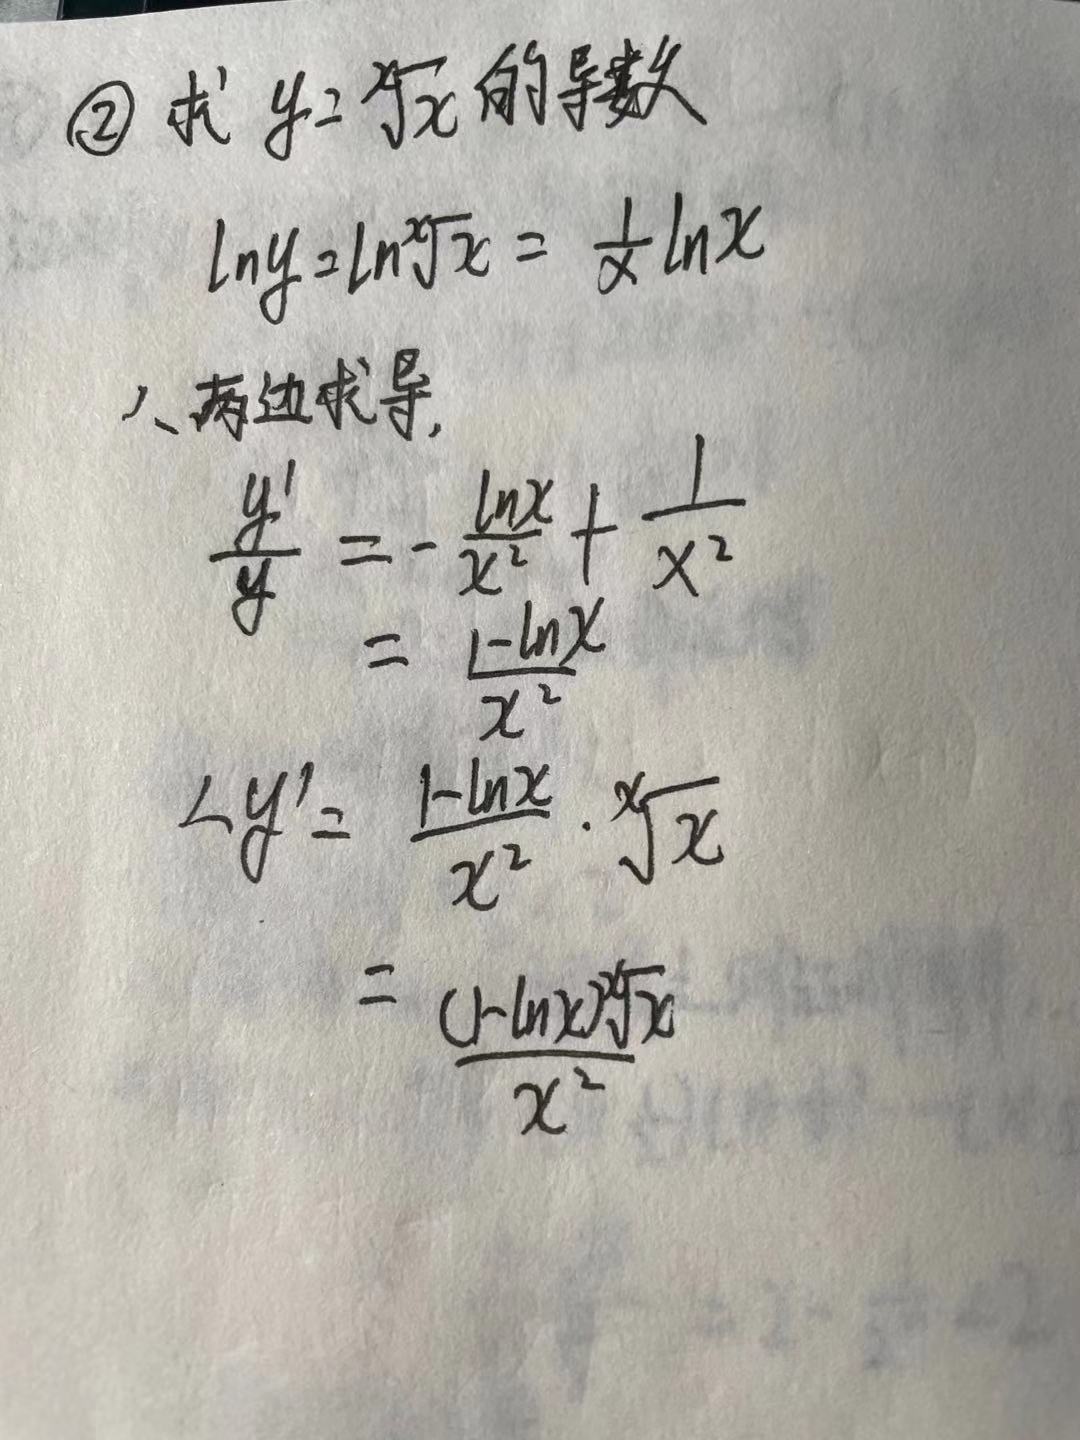 ② 求 y = ˣ√x 的导数
lny = lnˣ√x = 1/x lnx
∴ 两边求导,
y'/y = - lnx/x² + 1/x²
= 1-lnx/x²
∴ y' = 1-lnx/x² · ˣ√x
= (1-lnx)ˣ√x/x²